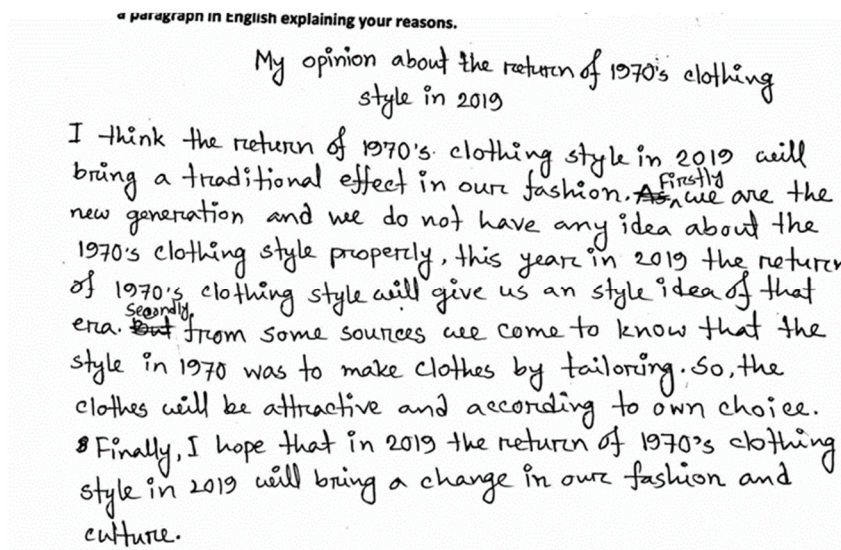 a paragraph in English explaining your reasons.
My opinion about the return of 1970's clothing
style in 2019
I think the return of 1970's clothing style in 2019 will
bring a traditional effect in our fashion. As, Firstly we are the
new generation and we do not have any idea about the
1970's clothing style properly, this year in 2019 the return
of 1970's clothing style will give us an style idea of that
era. But Secondly, from some sources we come to know that the
style in 1970 was to make clothes by tailoring. So, the
clothes will be attractive and according to own choice.
Finally, I hope that in 2019 the return of 1970's clothing
style in 2019 will bring a change in our fashion and
culture.